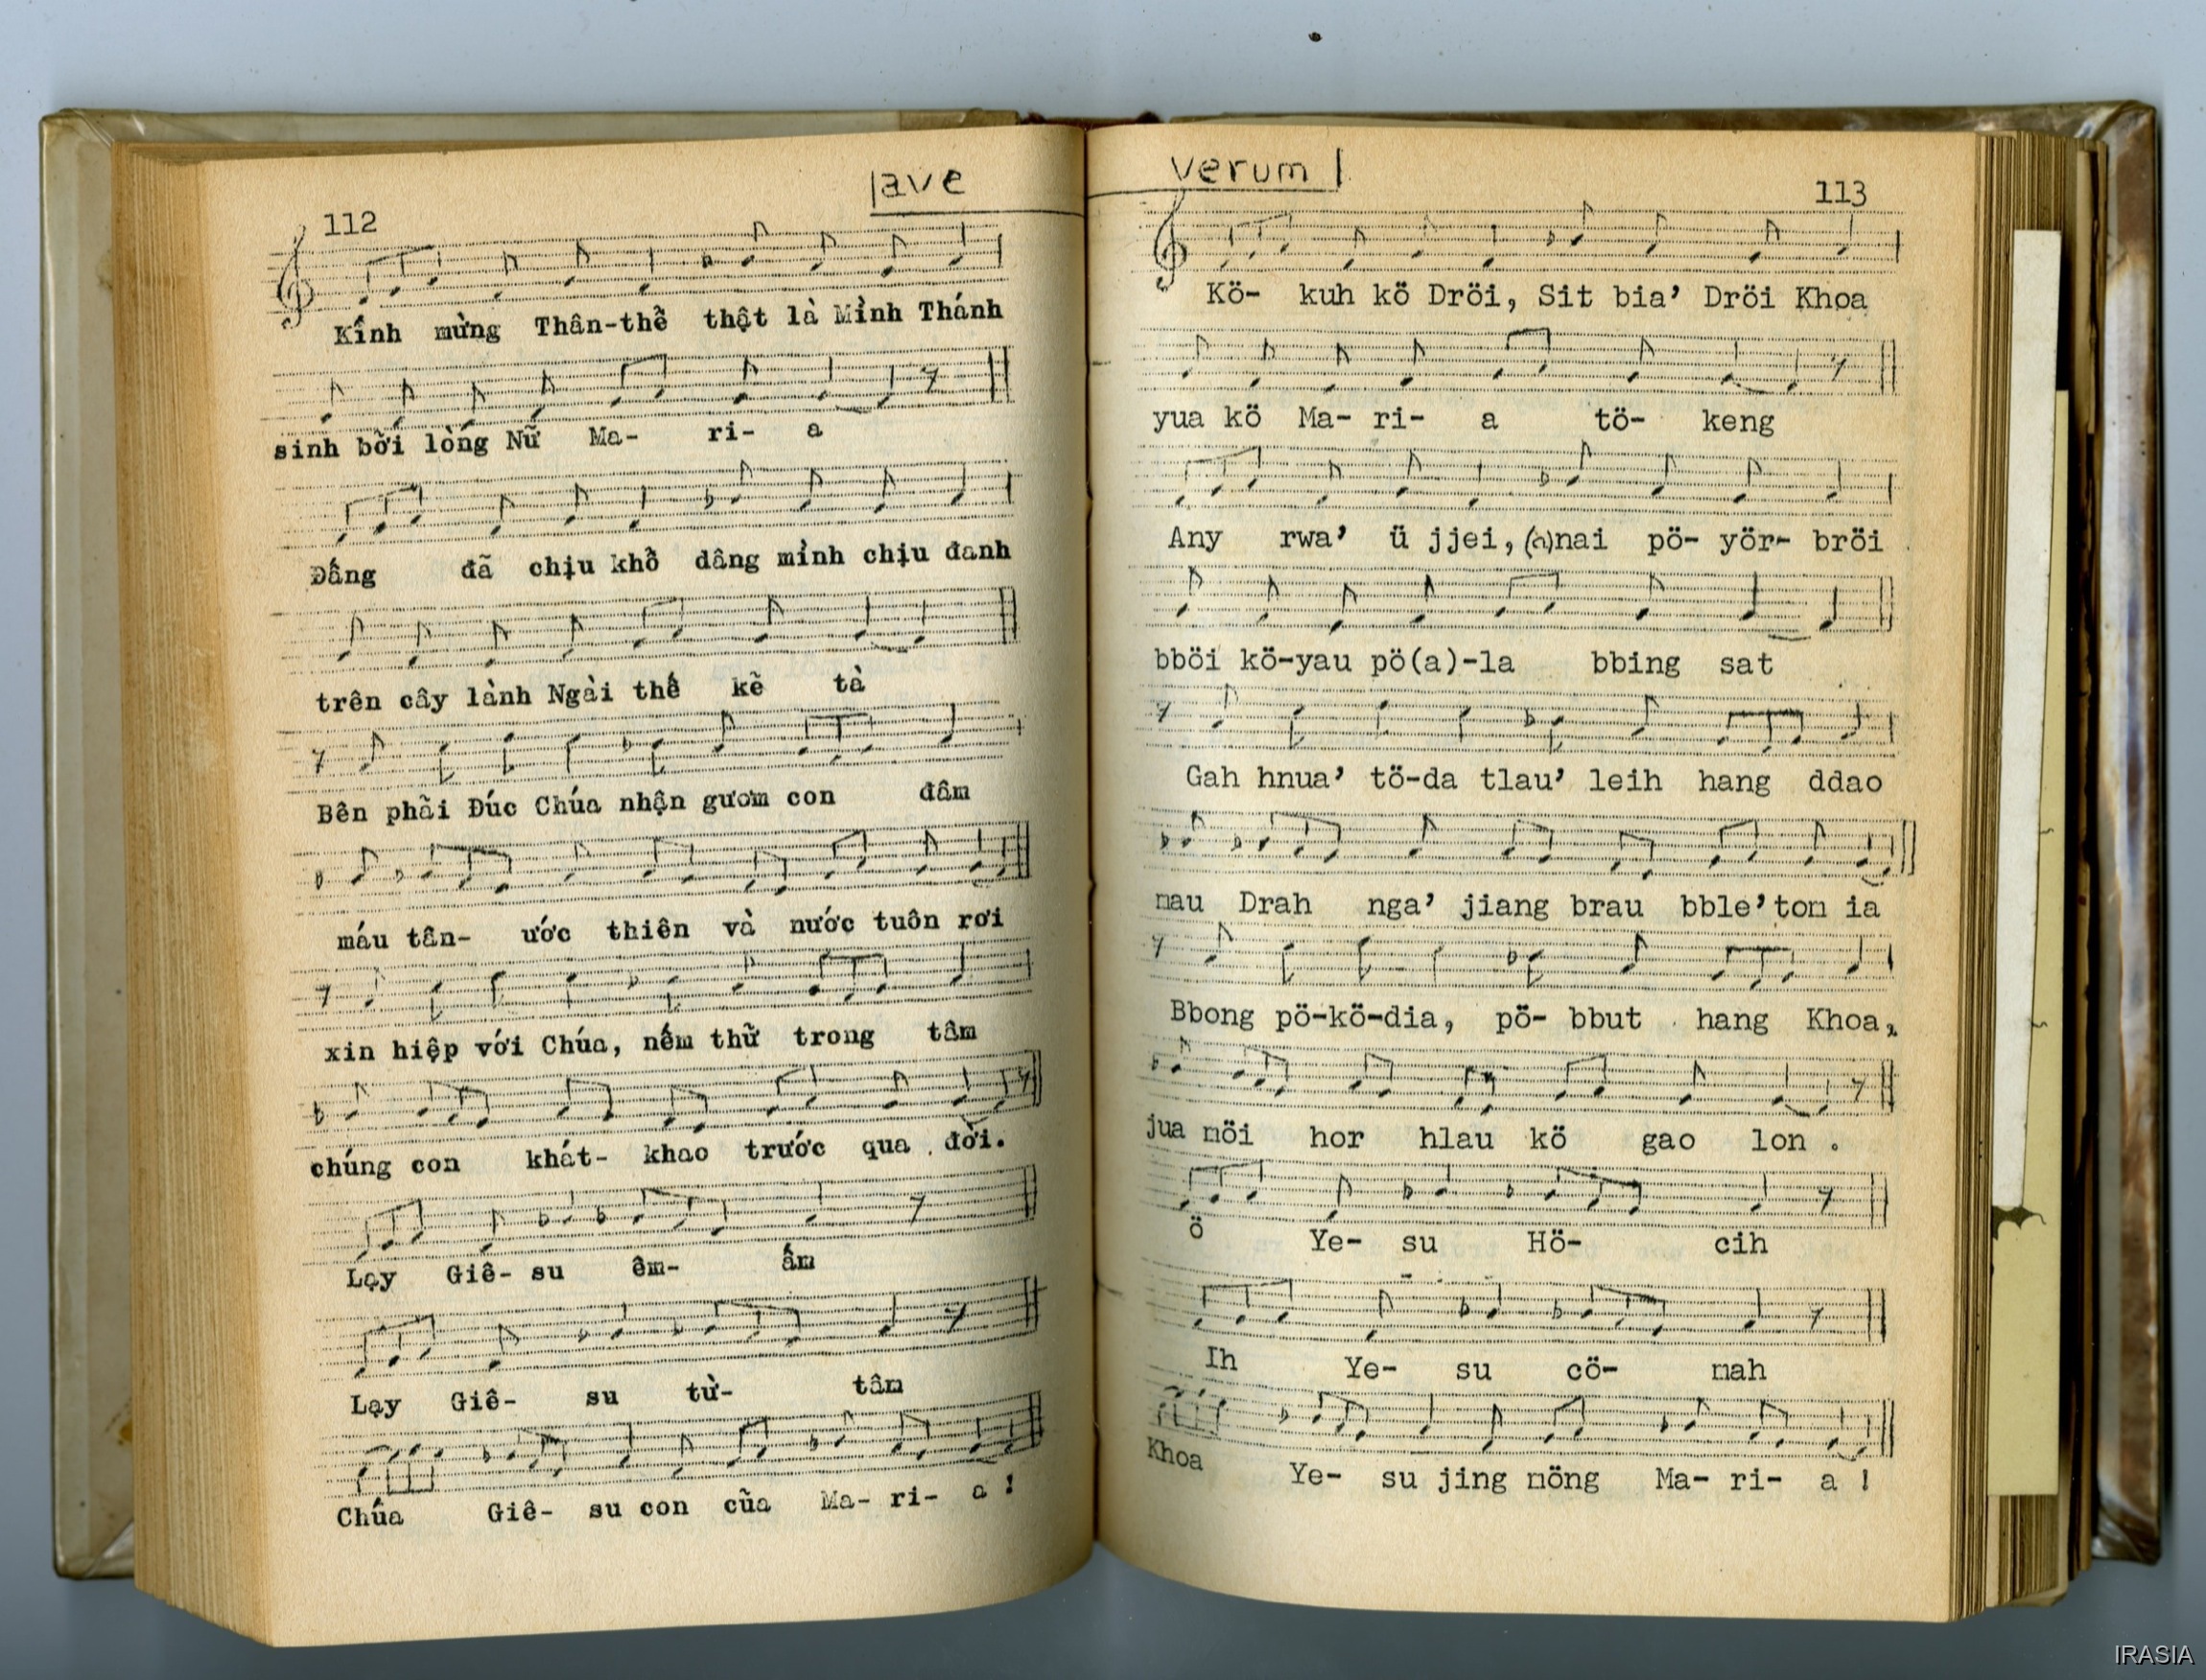 ave
112
Kính mừng Thân-thể thật là Mình Thánh
sinh bởi lòng Nữ Ma- ri- a
Đấng đã chịu khổ dâng mình chịu đanh
trên cây lành Ngài thế kẽ tà
Bên phãi Đúc Chúa nhận gươm con đâm
máu tân- ước thiên và nước tuôn rơi
xin hiệp với Chúa, nếm thữ trong tâm
chúng con khát- khao trước qua đời.
Lạy Giê- su êm- ấm
Lạy Giê- su từ- tâm
Chúa Giê- su con cũa Ma- ri- a !
verum
113
Kö- kuh kö Dröi, Sit bia' Dröi Khoa
yua kö Ma- ri- a tö- keng
Any rwa' ü jjei, (h)nai pö- yör- bröi
bböi kö-yau pö(a)-la bbing sat
Gah hnua' tö-da tlau' leih hang ddao
mau Drah nga' jiang brau bble' tom ia
Bbong pö-kö-dia, pö- bbut hang Khoa,
jua möi hor hlau kö gao lon .
ö Ye- su Hö- cih
Ih Ye- su cö- mah
Khoa Ye- su jing möng Ma- ri- a !
IRASIA